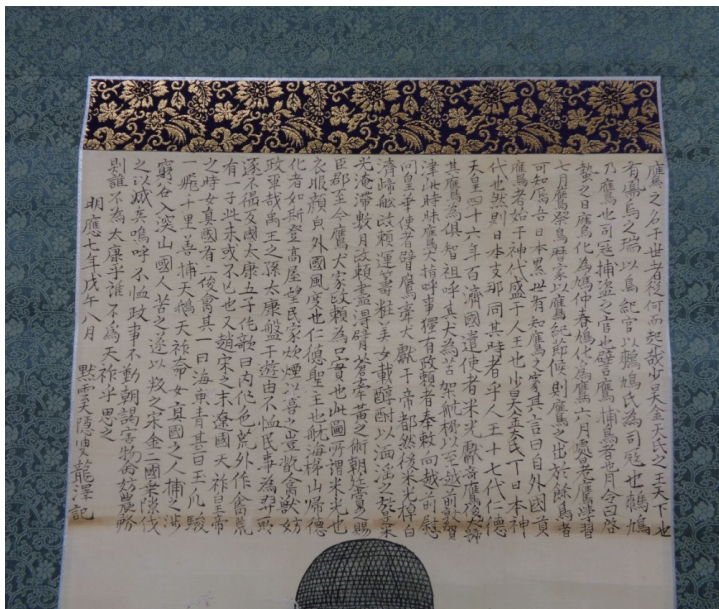 鷹之名于世者從何而起哉少昊金天氏之王天下也
有鳳鳥之瑞以鳥紀官以鷞鳩氏為司寇也鷞鳩
乃鷹也司寇捕盗之官也譬鷹捕鳥者也月令曰啓
蟄之日鷹化為鳩仲春鳩化為鷹六月處暑鷹學習
七月鷹祭鳥歷家以鷹紀節候則鷹之出於餘鳥者
可知焉吾日本累世有知鷹之家其言曰自外國貢
鷹者始于神代盛于人王也少昊金天氏丁日本神
代也然則日本支那同其時者乎人王十七代仁德
天皇四十六年百濟國遣使者米光獻奇鷹俊犬歸
其鷹為俱智祖呼其犬為苦架舩以至越前敦賀
津此時殊鷹犬指呼事獨有政賴者奉敕向越前慰
問皇華使者臂鷹牽犬獻于帝都然後米光棹白
濟歸舩政賴運籌粧美女載醇酎以湎淫之於是米
光淹滯數月政賴盡得臂蒼牽黃之術朝議賜
臣郡至今鷹犬家政賴為口實也此圖所謂米光也
衣服顏自外國風度也仁德聖主也航海梯山歸德
化者如斯登高屋望民家炊煙以喜之豈敢禽獸妨
政平哉禹王之孫太康盤于遊田不恤民事為羿所
逐不得反國太康五子作歌曰内作色荒外作禽荒
有一于此未或不亡也又趙宋之末遼國天祚皇帝
之時女真國有二俊禽其一曰海東青其一曰玉爪駿
一飛千里善捕天鵝天祚命女真國之人捕之涉
窮谷入深山國人苦之遂以叛之宋金二國乘隙伐
之以滅矣嗚呼不恤政事不勤朝謁害物命妨農功
則誰不為太康乎誰不為天祚乎思之
明應七年戊午八月 默雲天隱叟龍澤記